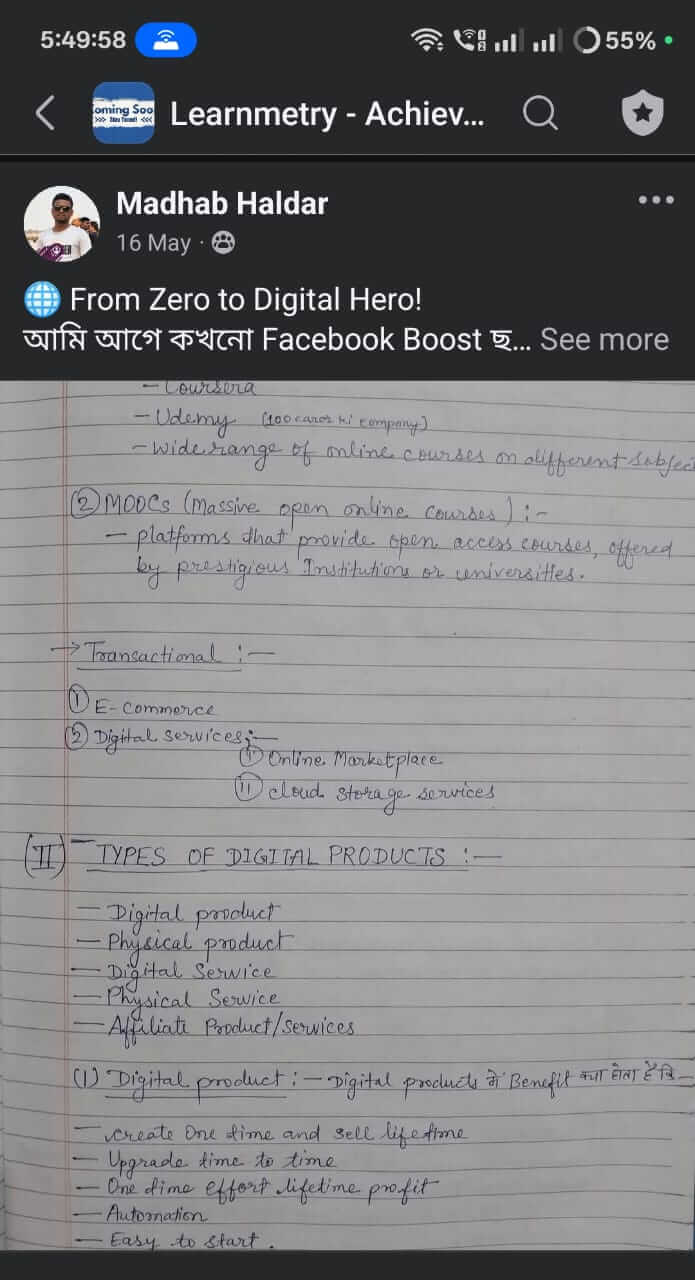 5:49:58
55%
oming Soo
Learnmetry - Achiev...
Madhab Haldar
16 May
From Zero to Digital Hero!
আমি আগে কখনো Facebook Boost ছ... See more
- Coursera
- Udemy (100 caror ki company)
- wide range of online courses on different subject
② MOOCs (Massive open online courses) :-
- platforms that provide open access courses, offered
by prestigious Institutions or universities.
→ Transactional :-
① E-commerce
② Digital services :-
① Online Marketplace
⑪ cloud storage services
(II) - TYPES OF DIGITAL PRODUCTS :-
- Digital product
- Physical product
- Digital Service
- Physical Service
- Affiliate Product/services
(1) Digital product :- Digital products में Benefit क्या होता है कि -
- create One time and sell lifetime
- Upgrade time to time
- One time effort lifetime profit
- Automation
- Easy to start.